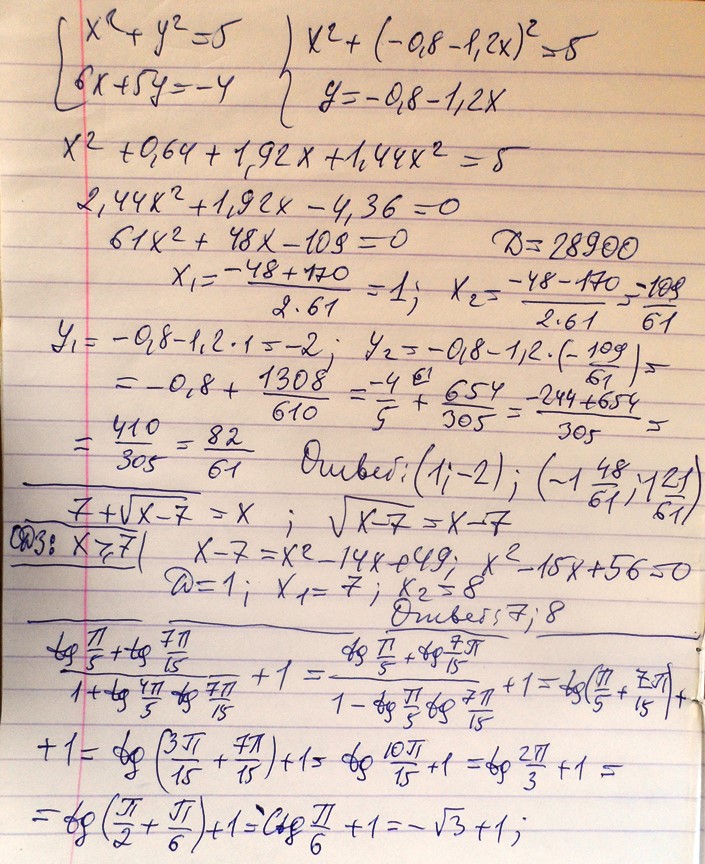 { x² + y² = 5 } x² + (-0,8-1,2x)² = 5
6x+5y=-4 { y=-0,8-1,2x
x² + 0,64 + 1,92x + 1,44x² = 5
2,44x² + 1,92x - 4,36 = 0
61x² + 48x - 109 = 0 D = 28900
x₁ = (-48+170)/(2·61) = 1; x₂ = (-48-170)/(2·61) = -109/61
y₁ = -0,8-1,2·1 = -2; y₂ = -0,8-1,2·(-109/61) =
= -0,8 + 1308/610 = -4/5 + 654/305 = (-244+654)/305 =
= 410/305 = 82/61 Ответ: (1;-2); (-1 48/61; 1 21/61)
7+√(x-7) = x ; √(x-7) = x-7
ОДЗ: x ≥ 7 | x-7 = x²-14x+49; x²-15x+56=0
D=1; x₁=7; x₂=8
Ответ: 7; 8
(tg π/5 + tg 7π/15)/(1 + tg 4π/5 tg 7π/15) + 1 = (tg π/5 + tg 7π/15)/(1 - tg π/5 tg 7π/15) + 1 = tg(π/5 + 7π/15) +
+1 = tg(3π/15 + 7π/15) + 1 = tg 10π/15 + 1 = tg 2π/3 + 1 =
= tg(π/2 + π/6) + 1 = -ctg π/6 + 1 = -√3 + 1;